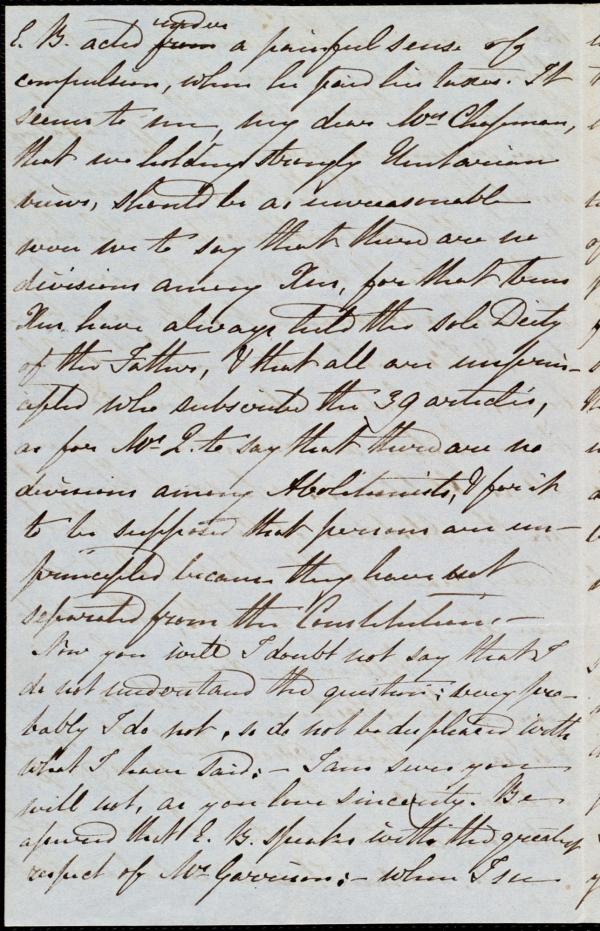 under
E. B. acted from a painful sense of
compulsion, when he paid his taxes. It
seems to me, my dear Mrs Chapman,
that we holding strongly Unitarian
views, should be as unreasonable
were we to say that there are no
divisions among Xns, for that true
Xns have always held the sole Deity
of the Father, & that all are unprin-
cipled who subscribe the 39 articles,
as for Mr Q. to say that there are no
divisions among Abolitionists, & for it
to be supposed that persons are un-
principled because they have not
separated from the Constitution. -
Now you will I doubt not say that I
do not understand the question; very pro-
bably I do not, so do not be displeased with
what I have said; - I am sure you
will not, as you love sincerity. Be
assured that E. B. speaks with the greatest
respect of Mr Garrison; - when I see